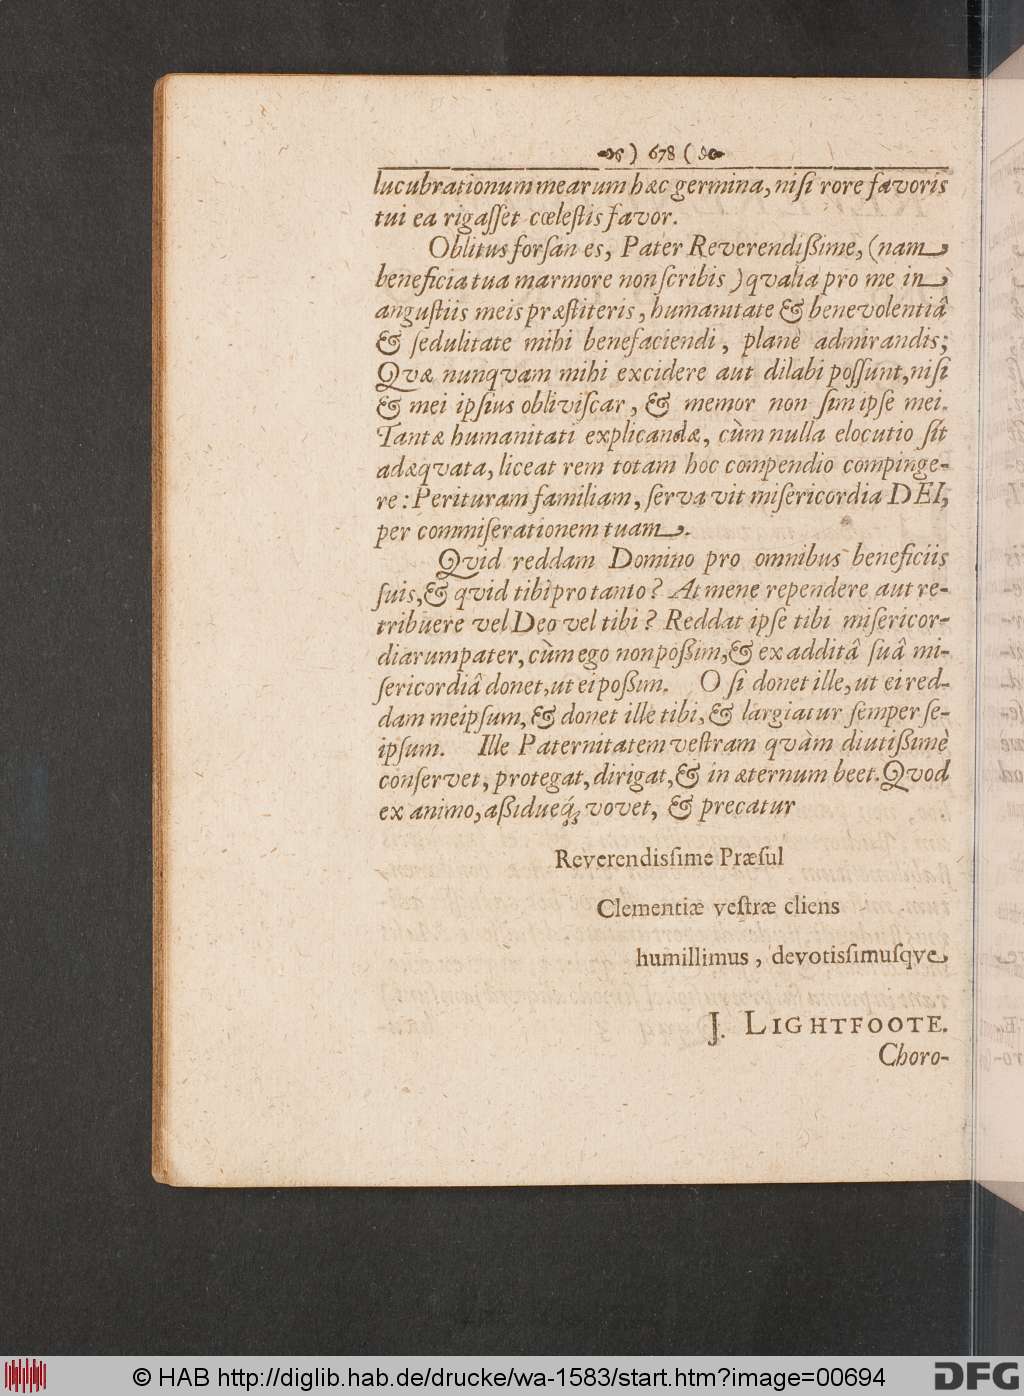 ) 678 (
lucubrationum mearum hæc germina, niſi rore favoris
tui ea rigaſſet cœleſtis favor.
Oblitus forſan es, Pater Reverendißime, (nam
beneficia tua marmore non ſcribis) qvalia pro me in
anguſtiis meis præſtiteris, humanitate & benevolentiâ
& ſedulitate mihi benefaciendi, planè admirandis;
Qvæ nunqvam mihi excidere aut dilabi poſſunt, niſi
& mei ipſius obliviſcar, & memor non ſim ipſe mei.
Tantæ humanitati explicandæ, cùm nulla elocutio ſit
adæqvata, liceat rem totam hoc compendio compinge-
re: Perituram familiam, ſervavit miſericordia DEI,
per commiſerationem tuam.
Qvid reddam Domino pro omnibus beneficiis
ſuis, & qvid tibi pro tanto? At mene rependere aut re-
tribuere vel Deo vel tibi? Reddat ipſe tibi miſericor-
diarum pater, cùm ego non poßim, & ex additâ ſuâ mi-
ſericordiâ donet, ut ei poßim. O ſi donet ille, ut ei red-
dam meipſum, & donet ille tibi, & largiatur ſemper ſe-
ipſum. Ille Paternitatem veſtram qvàm diutißimè
conſervet, protegat, dirigat, & in æternum beet. Qvod
ex animo, aßidueq́; vovet, & precatur
Reverendisſime Præſul
Clementiæ veſtræ cliens
humillimus, devotisſimuſqve
J. LIGHTFOOTE.
Choro-
© HAB http://diglib.hab.de/drucke/wa-1583/start.htm?image=00694
DFG